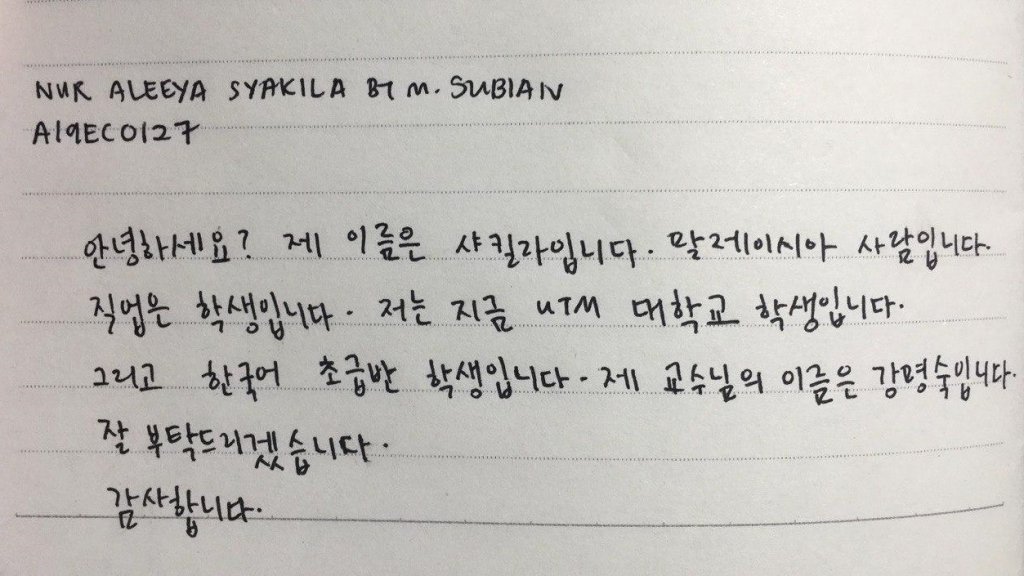 NUR ALEEYA SYAKILA BT M. SUBIAN
A19EC0127
안녕하세요? 제 이름은 샤킬라입니다. 말레이시아 사람입니다.
직업은 학생입니다. 저는 지금 UTM 대학교 학생입니다.
그리고 한국어 초급반 학생입니다. 제 교수님의 이름은 강명숙입니다.
잘 부탁드리겠습니다.
감사합니다.